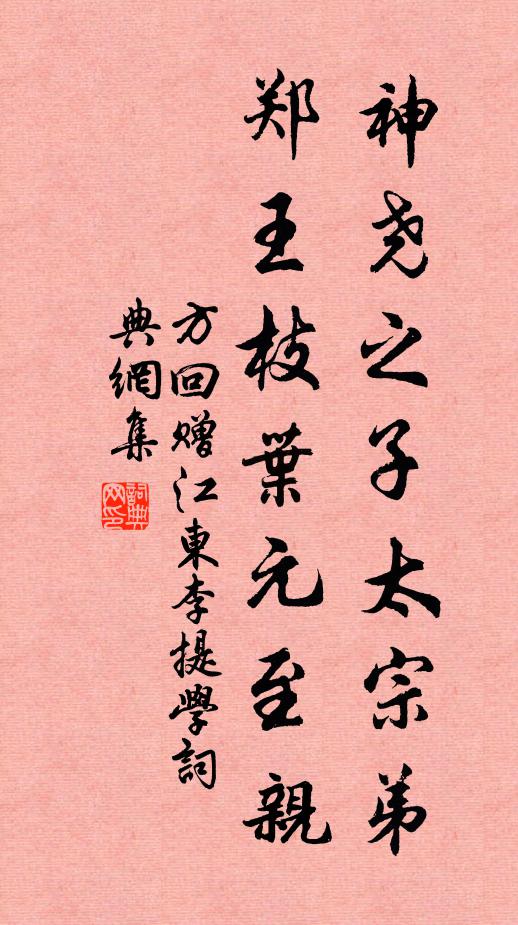 神尧之子太宗弟
郑王枝葉元至親
方回赠江東李提學詞
典網集
詞典
网印